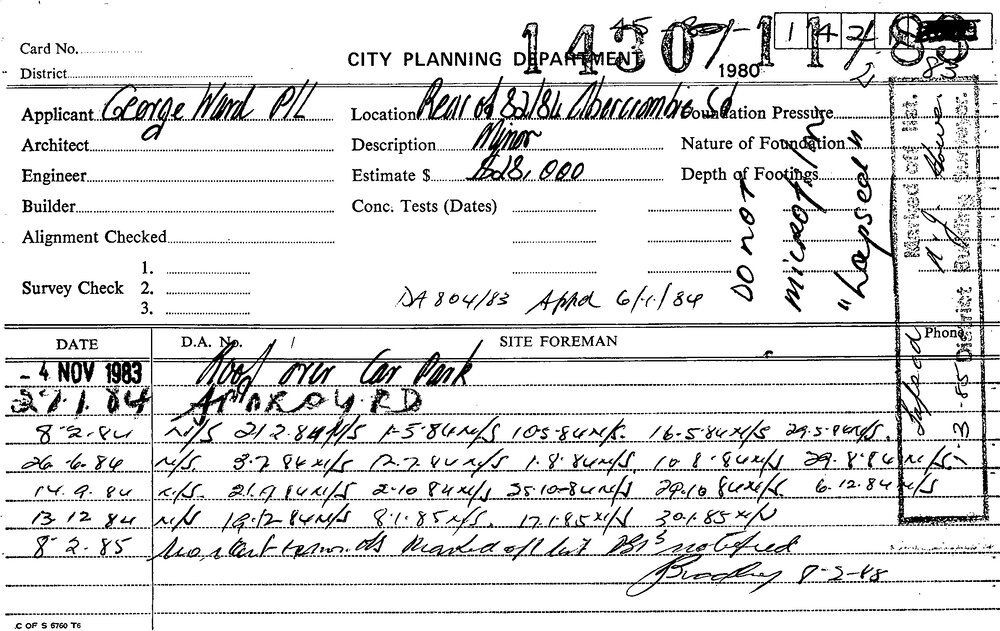 Card No.
District
CITY PLANNING DEPARTMENT
1980
1 4 2
Applicant George Ward P/L
Location Rear of 82/84 Abercrombie St
Foundation Pressure
Architect
Description Minor
Nature of Foundation
Engineer
Estimate $ $28,000
Depth of Footings
Builder
Conc. Tests (Dates)
Alignment Checked
Survey Check
1.
2.
3.
DA 804/83 Appd 6/1/84
DO NOT
microfilm
"Lapsed"
Marked off list.
District Building Surveyor.
Lapsed
1-3-85
DATE
D.A. No.
SITE FOREMAN
Phone
- 4 NOV 1983
Roof over Car Park
27.1.84 APPROVED
8-2-84 N/S 21.2.84 N/S 1-5-84 N/S 10-5-84 N/S. 16-5-84 N/S 29.5.84 N/S.
26.6.84 N/S 3.7.84 N/S 17.7.84 N/S 1.8.84 N/S. 10.8.84 N/S 29.8.84 N/S.
14.9.84 N/S. 21.9.84 N/S 2.10.84 N/S 25.10.84 N/S 29.10.84 N/S. 6.12.84 N/S
13.12.84 N/S 19.12.84 N/S 8.1.85 N/S. 17.1.85 N/S 30.1.85 N/S
8-2-85 Marked off list DBS notified
Bradley 8-2-85
C OF S 6760 T6